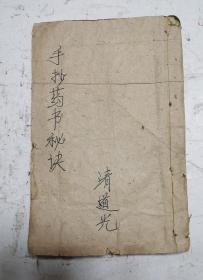 手抄药书秘诀
清道光